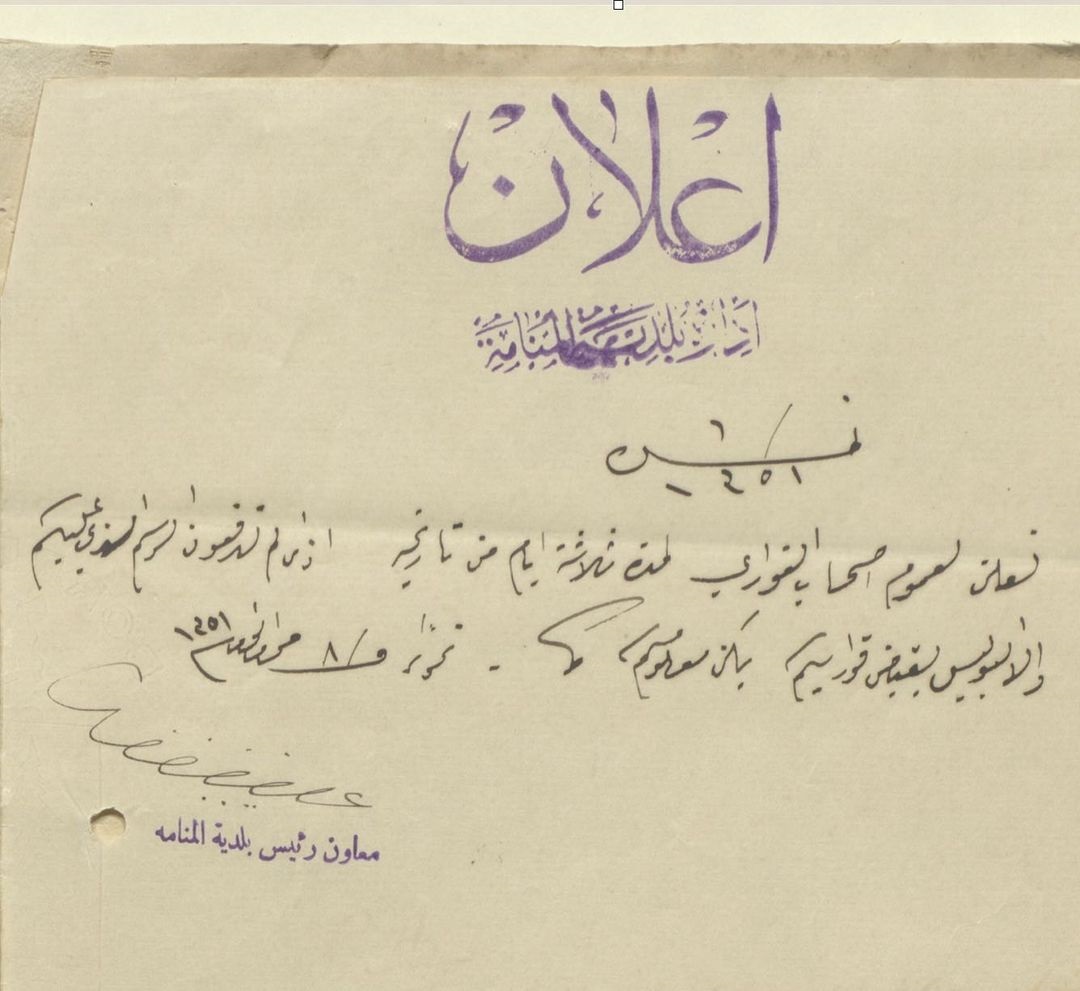 اعلان
ادارة بلدية المنامة
نمرة ٦ / ١٣٥١
نعلن لعموم اصحاب القواري لمدة ثلاثة ايام من تاريخه اذا لم تدفعون الرسم الذي عليكم
والا البوليس يقبض قواريكم يكن معلومكم
تحريرًا في ٨ محرم الحرام ١٣٥١
معاون رئيس بلدية المنامه